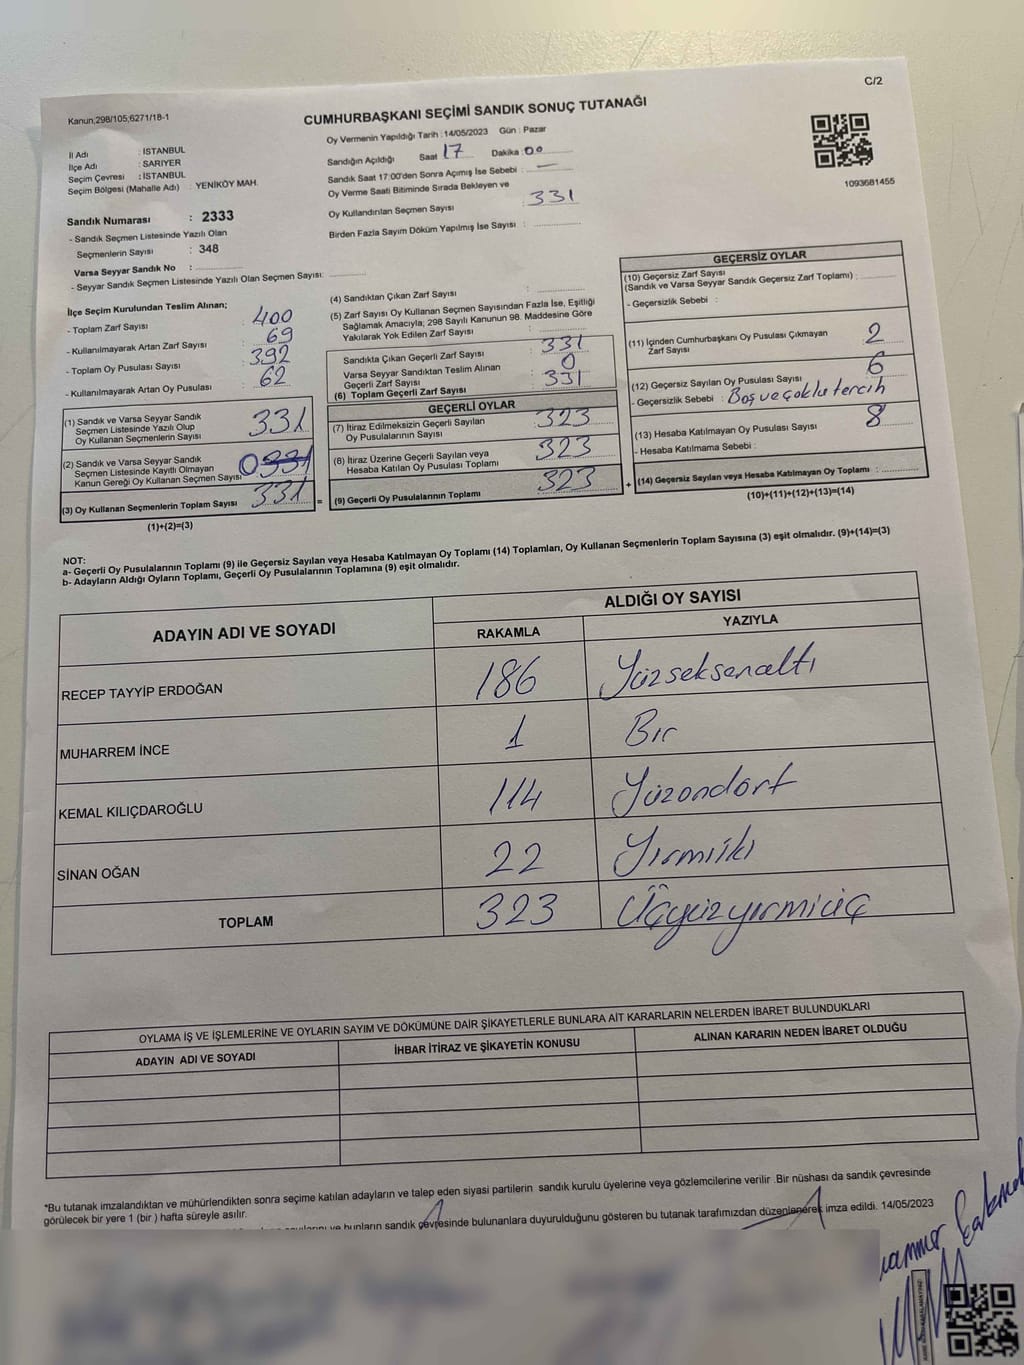 C/2
Kanun,298/105;6271/18-1
CUMHURBAŞKANI SEÇİMİ SANDIK SONUÇ TUTANAĞI
Oy Vermenin Yapıldığı Tarih : 14/05/2023 Gün : Pazar
İl Adı : İSTANBUL
İlçe Adı : SARIYER
Seçim Çevresi : İSTANBUL
Seçim Bölgesi (Mahalle Adı) : YENİKÖY MAH.
Sandığın Açıldığı Saat 17 Dakika 00
Sandık Saat 17:00'den Sonra Açımış İse Sebebi : —
Oy Verme Saati Bitiminde Sırada Bekleyen ve
Oy Kullandırılan Seçmen Sayısı : 331
Birden Fazla Sayım Döküm Yapılmış İse Sayısı :
1093681455
Sandık Numarası : 2333
- Sandık Seçmen Listesinde Yazılı Olan
Seçmenlerin Sayısı : 348
Varsa Seyyar Sandık No :
- Seyyar Sandık Seçmen Listesinde Yazılı Olan Seçmen Sayısı:
İlçe Seçim Kurulundan Teslim Alınan;
- Toplam Zarf Sayısı : 400
- Kullanılmayarak Artan Zarf Sayısı : 69
- Toplam Oy Pusulası Sayısı : 392
- Kullanılmayarak Artan Oy Pusulası : 62
(1) Sandık ve Varsa Seyyar Sandık
Seçmen Listesinde Yazılı Olup
Oy Kullanan Seçmenlerin Sayısı 331
(2) Sandık ve Varsa Seyyar Sandık
Seçmen Listesinde Kayıtlı Olmayan
Kanun Gereği Oy Kullanan Seçmen Sayısı 0 331
(3) Oy Kullanan Seçmenlerin Toplam Sayısı 331 =
(1)+(2)=(3)
(4) Sandıktan Çıkan Zarf Sayısı :
(5) Zarf Sayısı Oy Kullanan Seçmen Sayısından Fazla İse, Eşitliği
Sağlamak Amacıyla; 298 Sayılı Kanunun 98. Maddesine Göre
Yakılarak Yok Edilen Zarf Sayısı :
Sandıkta Çıkan Geçerli Zarf Sayısı : 331
Varsa Seyyar Sandıktan Teslim Alınan
Geçerli Zarf Sayısı : 0
(6) Toplam Geçerli Zarf Sayısı : 331
GEÇERLİ OYLAR
(7) İtiraz Edilmeksizin Geçerli Sayılan
Oy Pusulalarının Sayısı : 323
(8) İtiraz Üzerine Geçerli Sayılan veya
Hesaba Katılan Oy Pusulası Toplamı : 323
(9) Geçerli Oy Pusulalarının Toplamı : 323 +
GEÇERSİZ OYLAR
(10) Geçersiz Zarf Sayısı
(Sandık ve Varsa Seyyar Sandık Geçersiz Zarf Toplamı) :
- Geçersizlik Sebebi :
(11) İçinden Cumhurbaşkanı Oy Pusulası Çıkmayan
Zarf Sayısı : 2
(12) Geçersiz Sayılan Oy Pusulası Sayısı : 6
- Geçersizlik Sebebi : Boş ve çoklu tercih
(13) Hesaba Katılmayan Oy Pusulası Sayısı : 8
- Hesaba Katılmama Sebebi :
(14) Geçersiz Sayılan veya Hesaba Katılmayan Oy Toplamı :
(10)+(11)+(12)+(13)=(14)
NOT:
a- Geçerli Oy Pusulalarının Toplamı (9) ile Geçersiz Sayılan veya Hesaba Katılmayan Oy Toplamı (14) Toplamları, Oy Kullanan Seçmenlerin Toplam Sayısına (3) eşit olmalıdır. (9)+(14)=(3)
b- Adayların Aldığı Oyların Toplamı, Geçerli Oy Pusulalarının Toplamına (9) eşit olmalıdır.
ADAYIN ADI VE SOYADI
ALDIĞI OY SAYISI
RAKAMLA YAZIYLA
RECEP TAYYİP ERDOĞAN 186 Yüzseksenaltı
MUHARREM İNCE 1 Bir
KEMAL KILIÇDAROĞLU 114 Yüzondört
SİNAN OĞAN 22 Yirmiiki
TOPLAM 323 Üçyüzyirmiüç
OYLAMA İŞ VE İŞLEMLERİNE VE OYLARIN SAYIM VE DÖKÜMÜNE DAİR ŞİKAYETLERLE BUNLARA AİT KARARLARIN NELERDEN İBARET BULUNDUKLARI
ADAYIN ADI VE SOYADI İHBAR İTİRAZ VE ŞİKAYETİN KONUSU ALINAN KARARIN NEDEN İBARET OLDUĞU
*Bu tutanak imzalandıktan ve mühürlendikten sonra seçime katılan adayların ve talep eden siyasi partilerin sandık kurulu üyelerine veya gözlemcilerine verilir .Bir nüshası da sandık çevresinde
görülecek bir yere 1 (bir ) hafta süreyle asılır.
ve bunların sandık çevresinde bulunanlara duyurulduğunu gösteren bu tutanak tarafımızdan düzenlenerek imza edildi. 14/05/2023